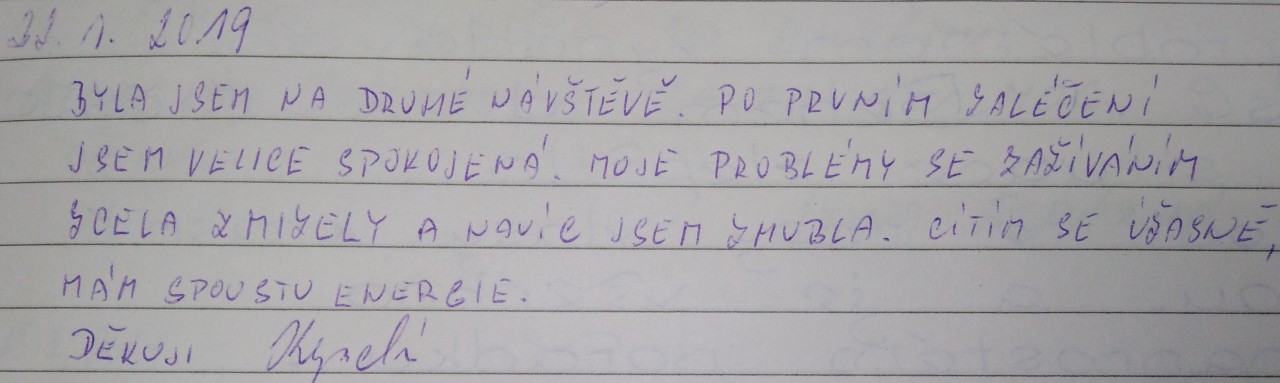 22. 1. 2019
BYLA JSEM NA DRUHÉ NÁVŠTĚVĚ. PO PRVNÍM ZALÉČENÍ
JSEM VELICE SPOKOJENÁ. MOJE PROBLÉMY SE ZAŽÍVÁNÍM
ZCELA ZMIZELY A NAVÍC JSEM ZHUBLA. CÍTÍM SE ÚŽASNĚ,
MÁM SPOUSTU ENERGIE.
DĚKUJI